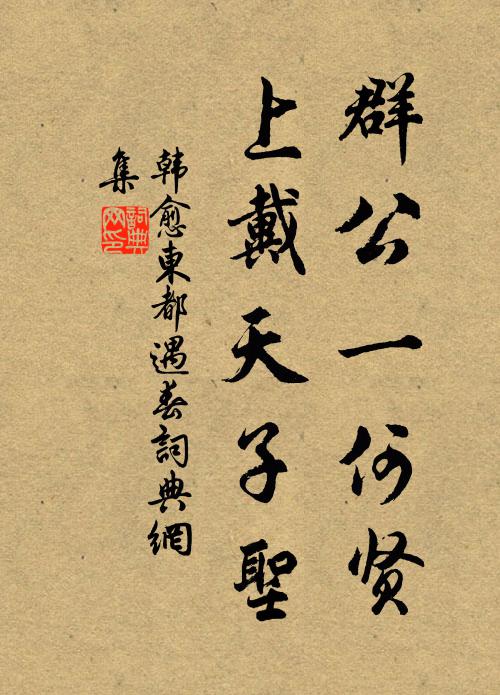 群公一何贤
上戴天子聖
韩愈東都遇春詞典網
集
詞典
网印